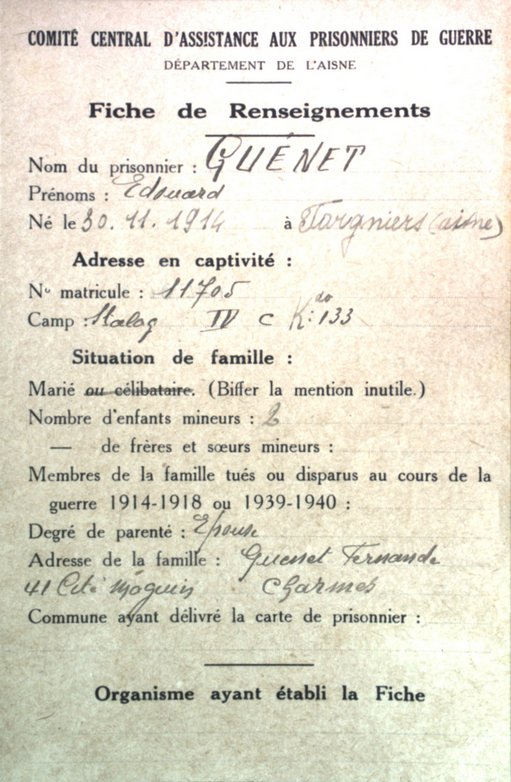 COMITÉ CENTRAL D'ASSISTANCE AUX PRISONNIERS DE GUERRE
DÉPARTEMENT DE L'AISNE
Fiche de Renseignements
Nom du prisonnier : GUÉNET
Prénoms : Edouard
Né le 30.11.1914 à Targniers (aisne)
Adresse en captivité :
No matricule : 11705
Camp : Stalag IV C Kdo: 133
Situation de famille :
Marié ou célibataire. (Biffer la mention inutile.)
Nombre d'enfants mineurs : 2
— de frères et sœurs mineurs :
Membres de la famille tués ou disparus au cours de la
guerre 1914-1918 ou 1939-1940 :
Degré de parenté : Epouse
Adresse de la famille : Guenet Fernande
41 Cité Maguin Charmes
Commune ayant délivré la carte de prisonnier :
Organisme ayant établi la Fiche